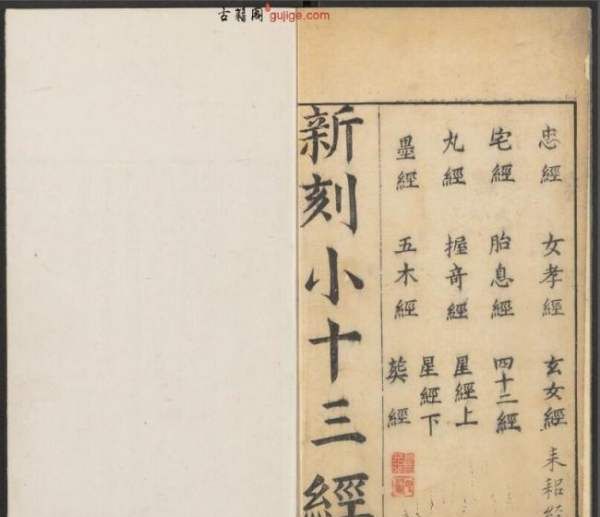 古籍阁 gujige.com
忠經 女孝經 玄女經 耒耜經
宅經 胎息經 四十二經
丸經 握奇經 星經上
星經下
墨經 五木經 葬經
新刻小十三經